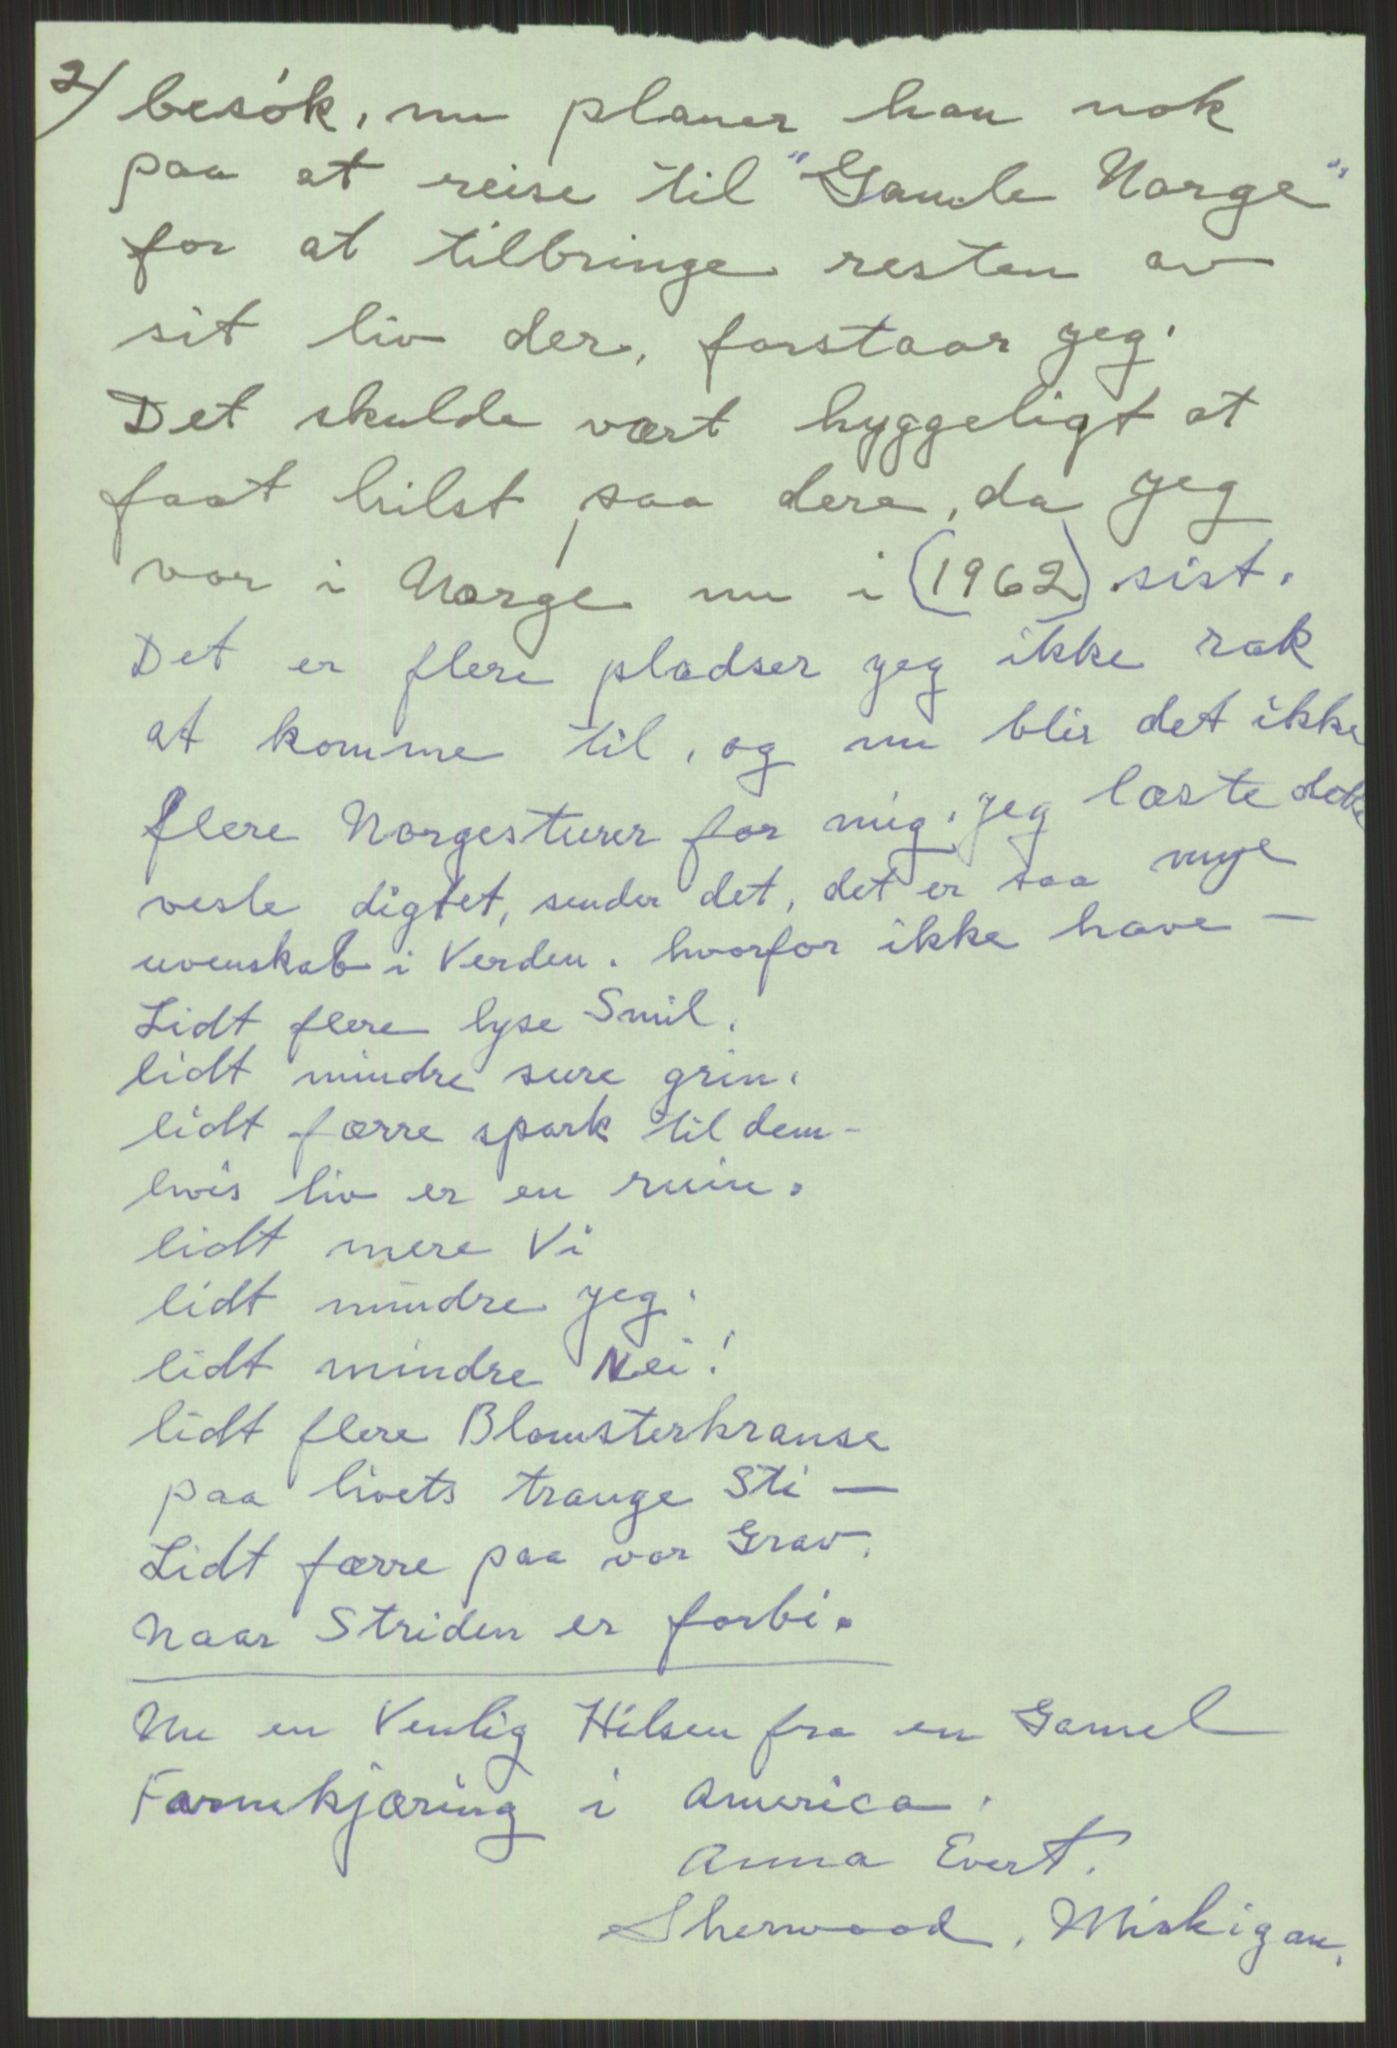 2/ besök, nu planer han nok
paa at reise til "Gamle Norge"
for at tilbringe resten av
sit liv der, forstaar jeg.
Det skulde vært hyggeligt at
faat hilst paa dere, da jeg
var i Norge nu i (1962) sist.
Det er flere pladser jeg ikke rak
at komme til, og nu blir det ikke
flere Norgesturer for mig. jeg læste dette
vesle digtet, sender det, det er saa mye
uvenskab i Verden. hvorfor ikke have —
Lidt flere lyse Smil.
lidt mindre sure grin.
lidt færre spark til dem-
hvis liv er en ruin.
lidt mere Vi
lidt mindre jeg.
lidt mindre Nei!
lidt flere Blomsterkranse
paa livets trange Sti —
Lidt færre paa vor Grav.
Naar Striden er forbi.
Nu en Venlig Hilsen fra en Gamel
Farmkjæring i America.
Anna Evert.
Sherwood, Miskigan.